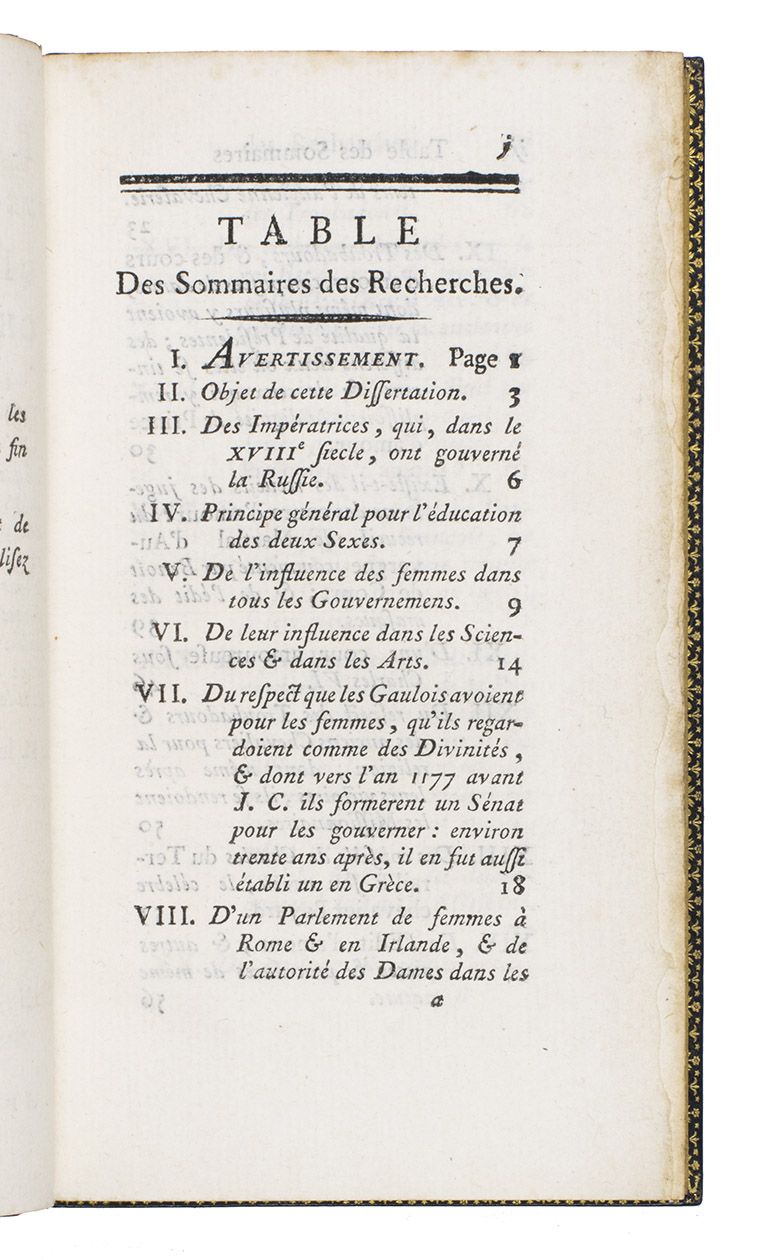 les
fin
de
lisez
j
TABLE
Des Sommaires des Recherches.
I. AVERTISSEMENT. Page 1
II. Objet de cette Dissertation. 3
III. Des Impératrices, qui, dans le
XVIIIe siecle, ont gouverné
la Russie. 6
IV. Principe général pour l'éducation
des deux Sexes. 7
V. De l'influence des femmes dans
tous les Gouvernemens. 9
VI. De leur influence dans les Scien-
ces & dans les Arts. 14
VII. Du respect que les Gaulois avoient
pour les femmes, qu'ils regar-
doient comme des Divinités,
& dont vers l'an 1177 avant
J. C. ils formerent un Sénat
pour les gouverner : environ
trente ans après, il en fut aussi
établi un en Grèce. 18
VIII. D'un Parlement de femmes à
Rome & en Irlande, & de
l'autorité des Dames dans les
a